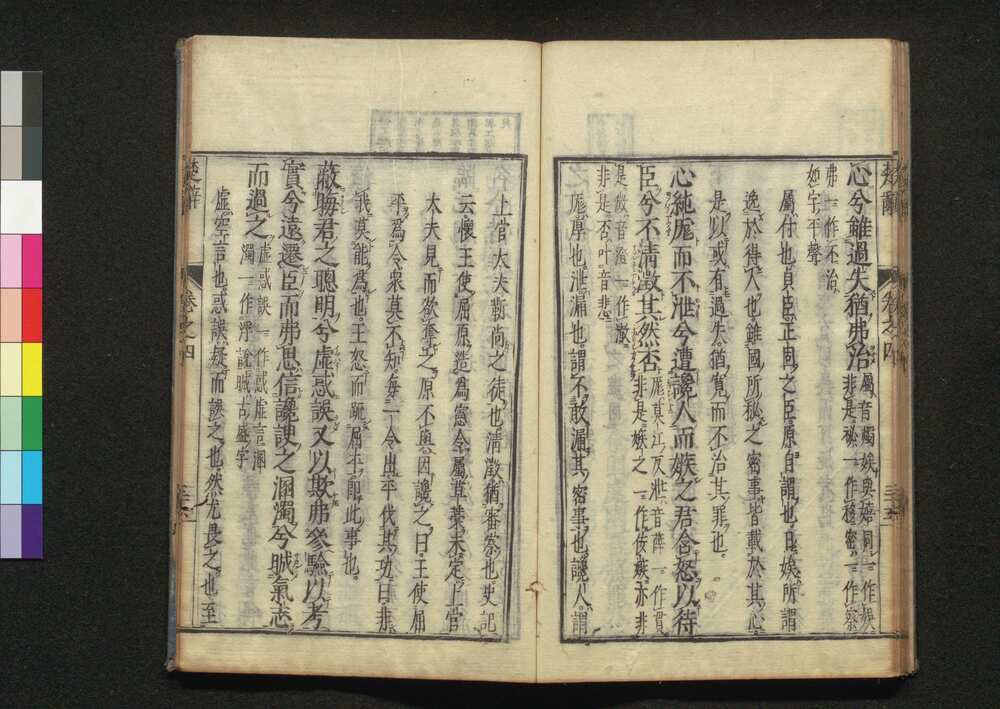 楚辭 卷之四
心兮雖過失猶弗治屬音燭娭與嬉同一作娛
非是秘一作移密一作察
弗一作不治
如字平聲
屬付也貞臣正固之臣原自謂也日娭所謂
逸於得人也雖國所秘之密事皆載於其心
是以或有過失猶寬而不治其罪也
心純厖而不泄兮遭讒人而嫉之君含怒以待
臣兮不清澂其然否厖莫江反泄音薛一作貫
非是嫉之一作佞嫉亦非
是澂音澄一作澈
非是否叶音悲
厖厚也泄漏也謂不敢漏其密事也讒人謂
上官大夫靳尚之徒也清澂猶審察也史記
云懷王使屈原造為憲令屬草藁未定上官
大夫見而欲奪之原不與因讒之曰王使屈
平為令衆莫不知每一令出平伐其功曰非
我莫能為也王怒而疏屈平即此事也
蔽晦君之聰明兮虛惑誤又以欺弗參驗以考
實兮遠遷臣而弗思信讒諛之溷濁兮晠氣志
而過之虛惑誤一作惑虛言溷
濁一作浮說晠古盛字
虛空言也惑誤疑而誤之也然尤長之也至
楚辭 卷之四